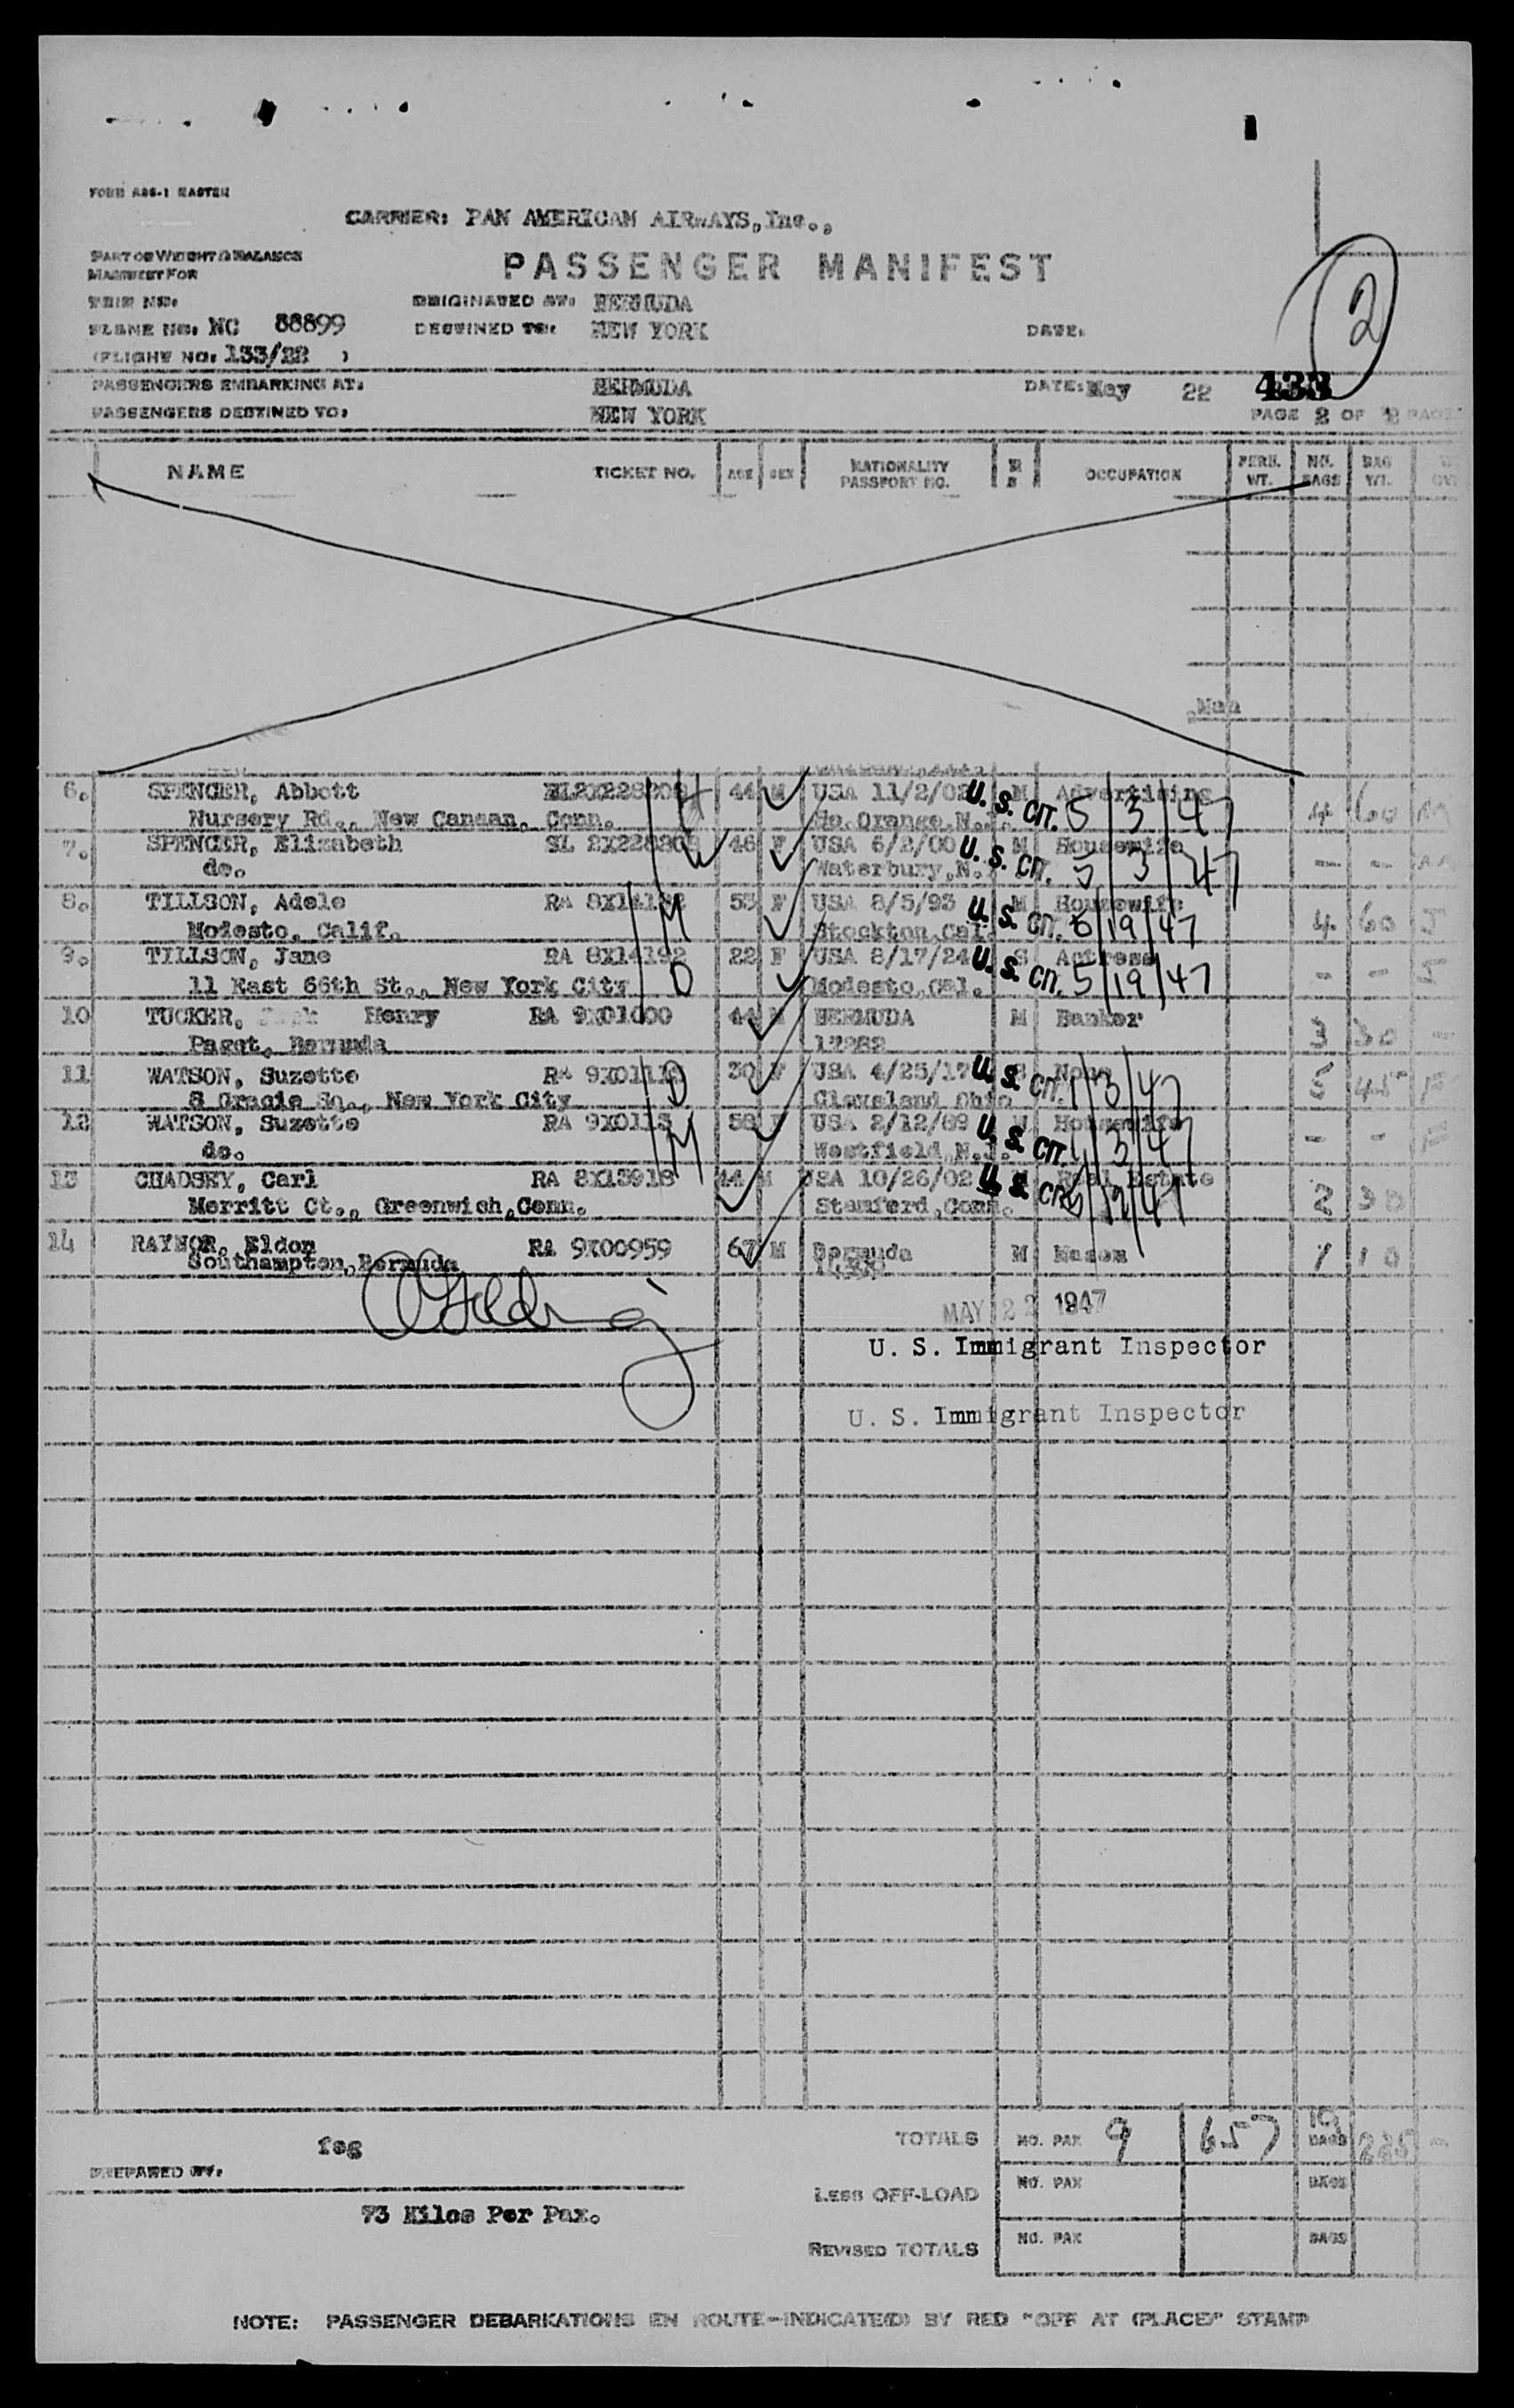 FORM ABS-1 MASTER
CARRIER: PAN AMERICAN AIRWAYS, Inc.,
PART OF WEIGHT & BALANCE
MANIFEST FOR
PASSENGER MANIFEST
TRIP NO:
ORIGINATED AT: BERMUDA
PLANE NO: NC 88899
DESTINED TO: NEW YORK
DATE:
2
(FLIGHT NO: 133/22 )
PASSENGERS EMBARKING AT: BERMUDA
DATE: May 22
433
PASSENGERS DESTINED TO: NEW YORK
PAGE 2 OF 2 PAGES
NAME TICKET NO. AGE SEX NATIONALITY PASSPORT NO. M S OCCUPATION PERS. WT. NO. BAGS BAG WT.
Man
6. SPENCER, Abbott 44 M USA 11/2/02 U. S. CIT. M Advertising 5/3/47 4 60
Nursery Rd., New Canaan, Conn. So. Orange, N.J.
7. SPENCER, Elizabeth 46 F USA 6/2/00 U. S. CIT. M Housewife 5/3/47 - -
do. Waterbury, N.
8. TILLSON, Adele RA 8X14192 53 F USA 8/5/93 U. S. CIT. M Housewife 5/19/47 4 60
Modesto, Calif. M Stockton, Cal.
9. TILLSON, Jane RA 8X14192 22 F USA 8/17/24 U. S. CIT. S Actress 5/19/47 - -
11 East 66th St., New York City D Modesto, Cal.
10 TUCKER, Henry RA 9X01000 44 M BERMUDA M Banker 3 30
Paget, Bermuda 17282
11 WATSON, Suzette 30 F USA 4/25/17 U. S. CIT. S None 1/3/47 5 45
8 Gracie Sq., New York City D Cleveland Ohio
12 WATSON, Suzette RA 9X0115 58 F USA 2/12/89 U. S. CIT. Housewife 1/3/47 - -
do. M Westfield, N.J.
13 CHADSEY, Carl RA 8X13918 44 M USA 10/26/02 U. S. CIT. Real Estate 2 30
Merritt Ct., Greenwich, Conn. Stamford, Conn.
14 RAYNOR, Eldon RA 9X00959 67 M Bermuda M Mason 1 10
Southampton, Bermuda
MAY 22 1947
U. S. Immigrant Inspector
U. S. Immigrant Inspector
TOTALS NO. PAX 9 657 19 BAGS 235
feg
PREPARED BY:
LESS OFF-LOAD NO. PAX BAGS
73 Kilos Per Pax.
REVISED TOTALS NO. PAX BAGS
NOTE: PASSENGER DEBARKATIONS EN ROUTE-INDICATE(D) BY RED "OFF AT (PLACE)" STAMP